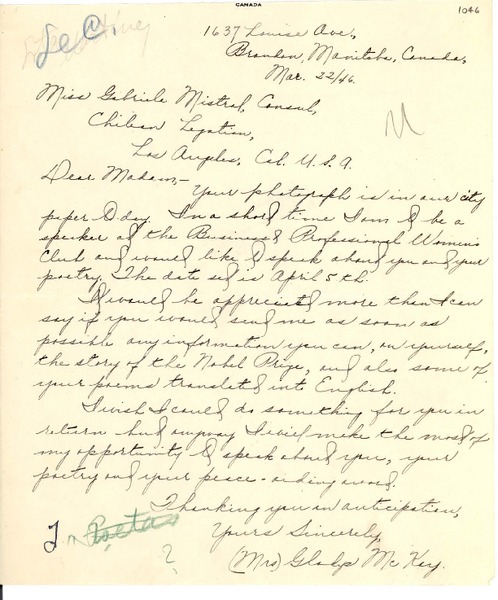 CANADA
1046
Le C.
1637 Louise Ave,
Brandon, Manitoba, Canada,
Mar. 22/46.
Miss Gabriele Mistral, Consul,
Chilean Legation,
Los Angeles, Cal. U.S.A.
Dear Madam,-
Your photograph is in our city
paper to day. In a short time I am to be a
speaker at the Business & Professional Women's
Club and would like to speak about you and your
poetry. The date set is April 5th.
It would be appreciated more than I can
say if you would send me as soon as
possible any information you can, on yourself,
the story of the Nobel Prize, and also some of
your poems translated into English.
I wish I could do something for you in
return but anyway I will make the most of
my opportunity to speak about you, your
poetry and your peace-aiding award.
Thanking you in anticipation,
Yours Sincerely,
(Mrs) Gladys McKay.
Poetas
?